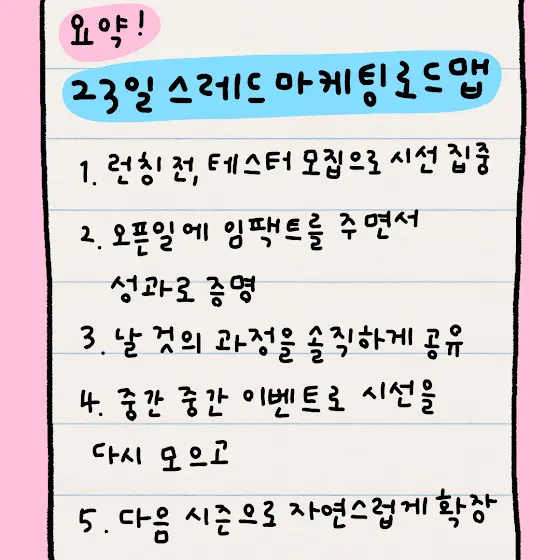 요약!
23일 스레드 마케팅 로드맵
1. 런칭 전, 테스터 모집으로 시선 집중
2. 오픈일에 임팩트를 주면서
성과로 증명
3. 날 것의 과정을 솔직하게 공유
4. 중간 중간 이벤트로 시선을
다시 모으고
5. 다음 시즌으로 자연스럽게 확장